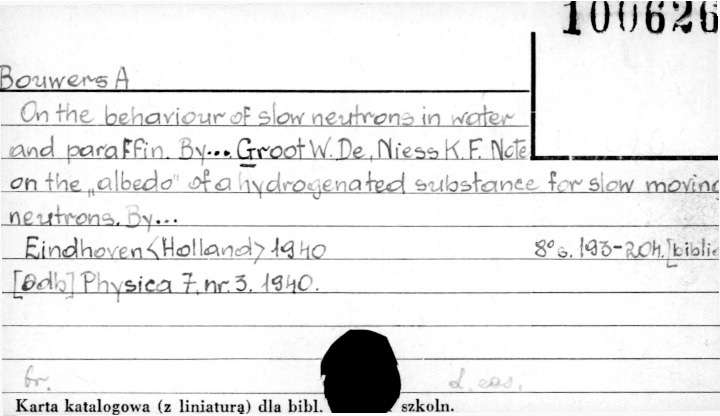 100626
Bouwers A
On the behaviour of slow neutrons in water
and paraffin. By... Groot W. De, Niess K. F. Note
on the „albedo" of a hydrogenated substance for slow moving
neutrons. By...
Eindhoven <Holland> 1940 8° s. 193-204. [biblio
[Odb] Physica 7, nr. 3. 1940.
br.
Karta katalogowa (z liniaturą) dla bibl. szkoln.